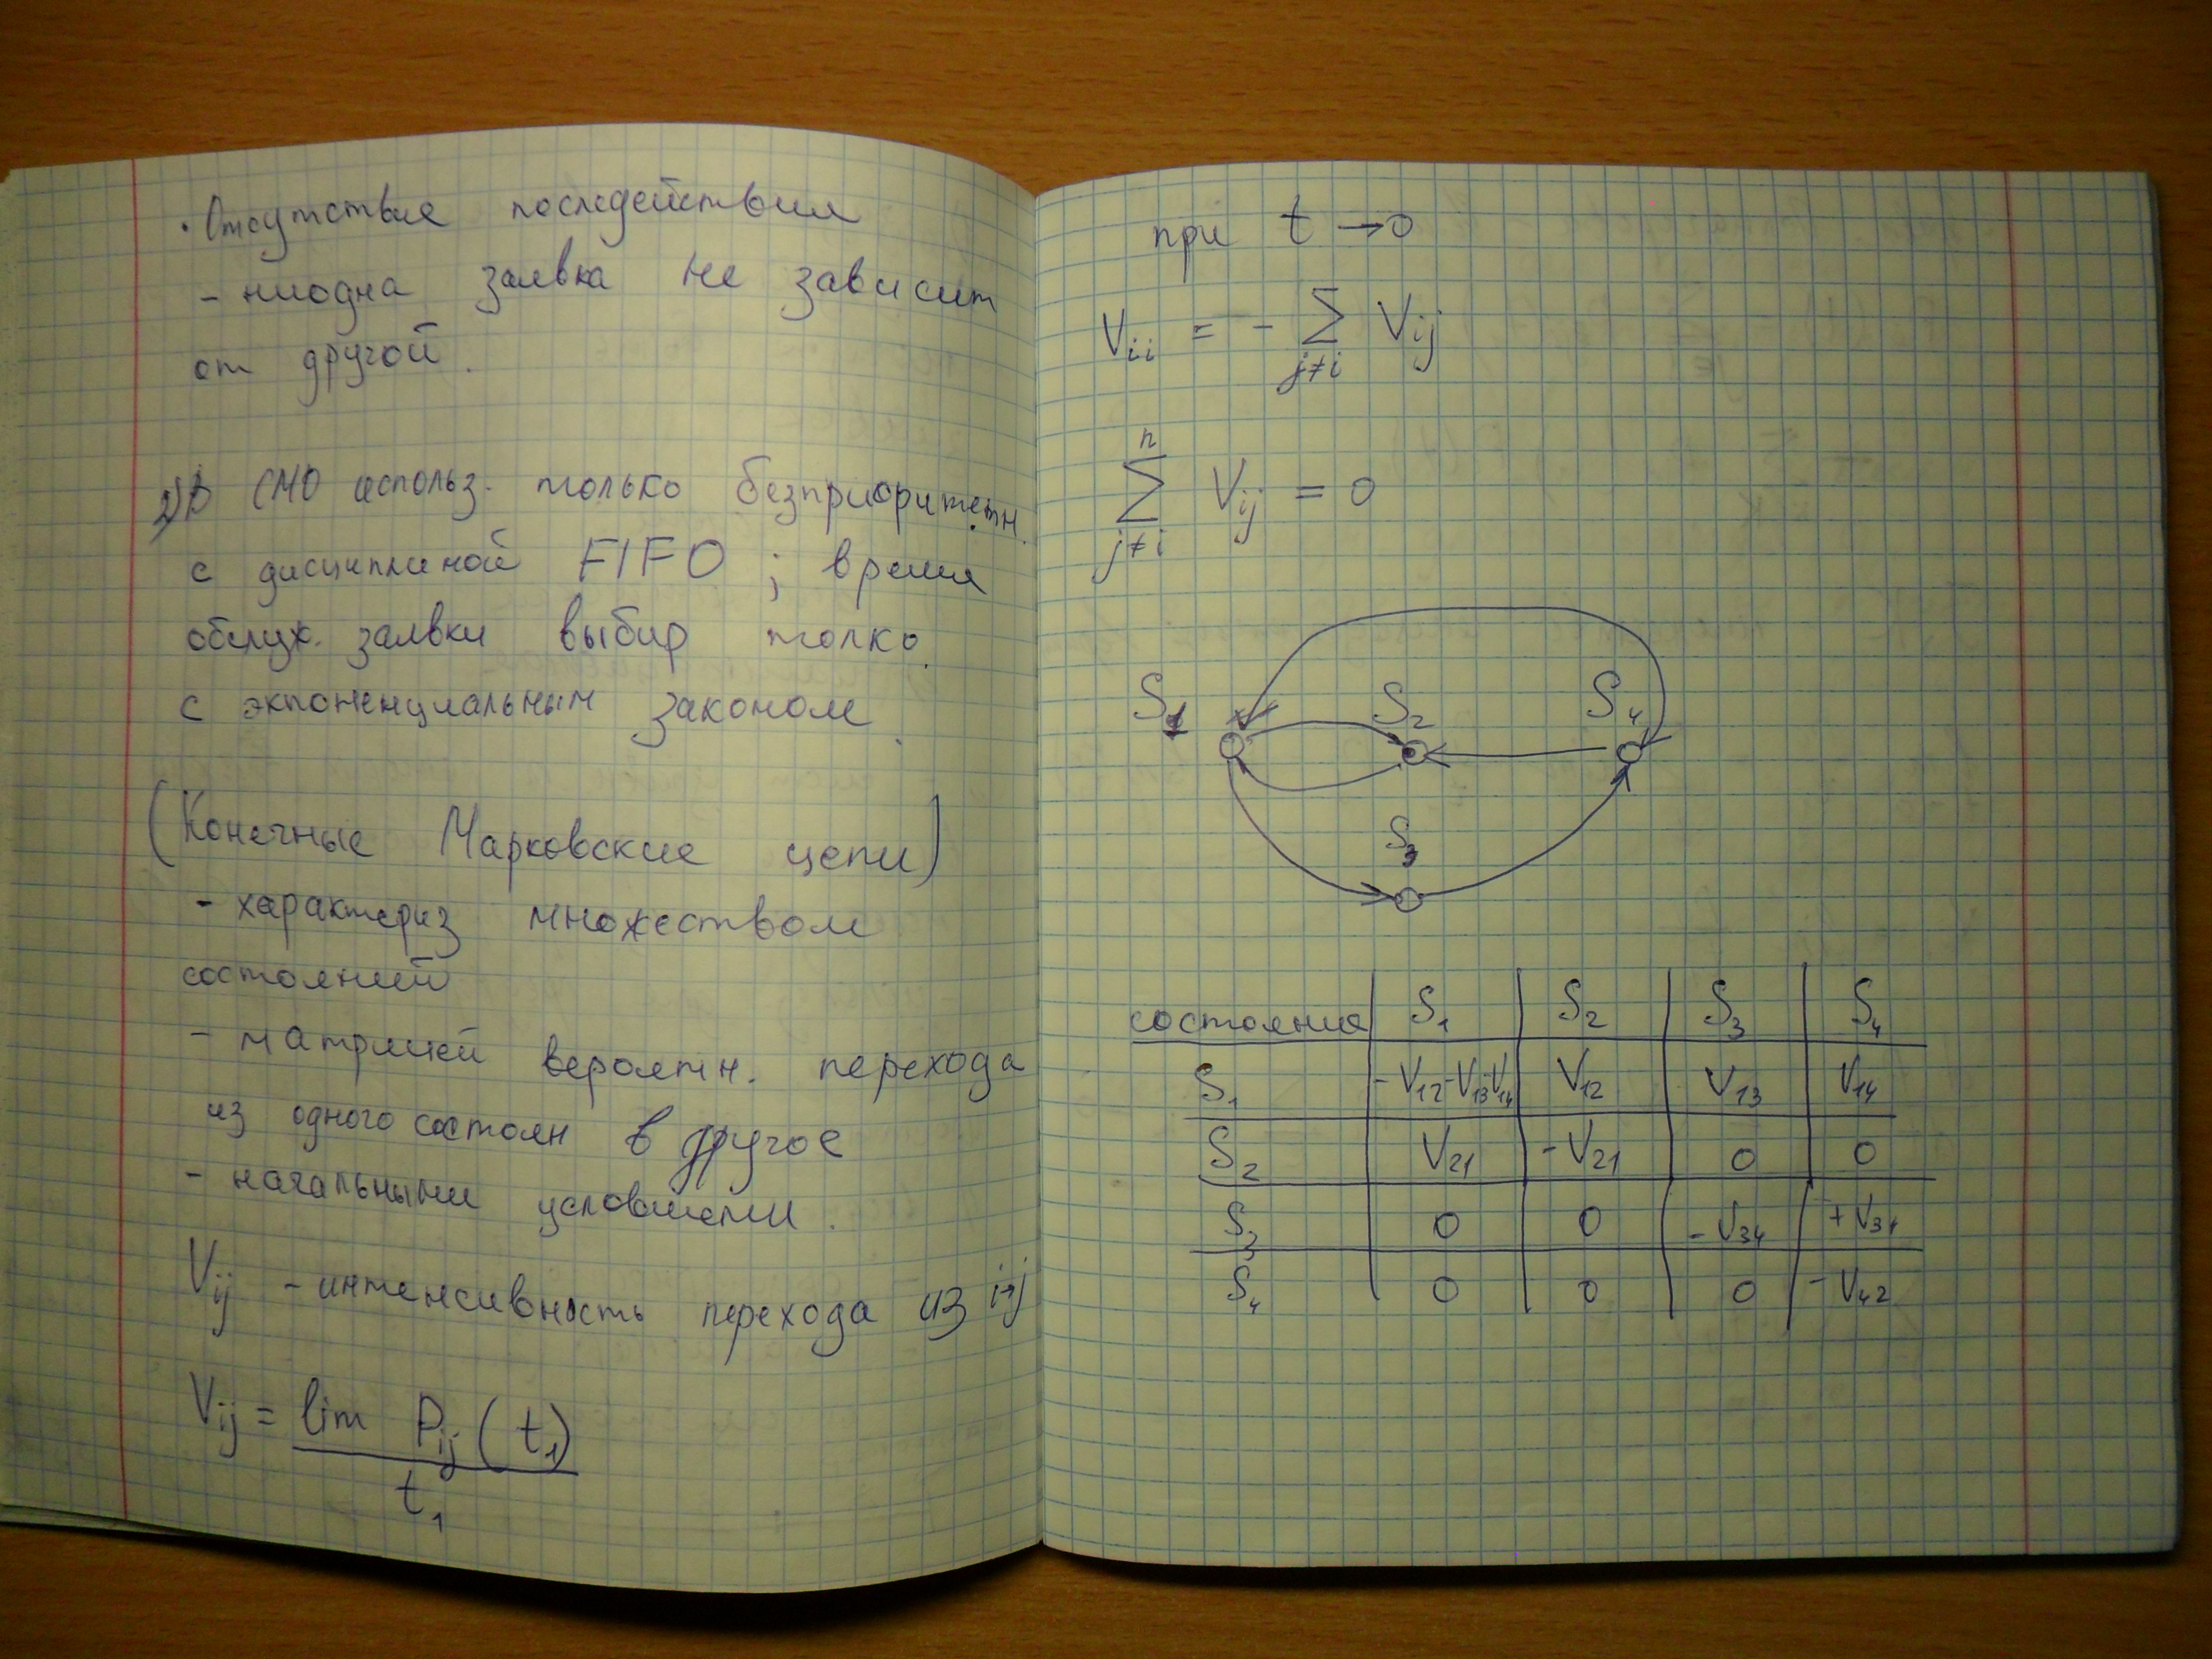 · Отсутствие последействия
- ниодна заявка не зависит
от другой.
2) В СМО использ. только безприоритетн.
с дисциплиной FIFO ; время
обслуж. заявки выбир толко
с экпоненциальным законом.
(Конечные Марковские цепи)
- характериз множеством
состояний
- матрицей вероятн. перехода
из одного состоян в другое
- начальными условиями.
Vij - интенсивность перехода из i→j
Vij = lim Pij (t1)
t1
при t → 0
Vii = - ∑ Vij
j≠i
n
∑ Vij = 0
j≠i
S1 S2 S4
S3
состояния S1 S2 S3 S4
S1 -V12-V13-V14 V12 V13 V14
S2 V21 -V21 0 0
S3 0 0 -V34 +V34
S4 0 0 0 -V42